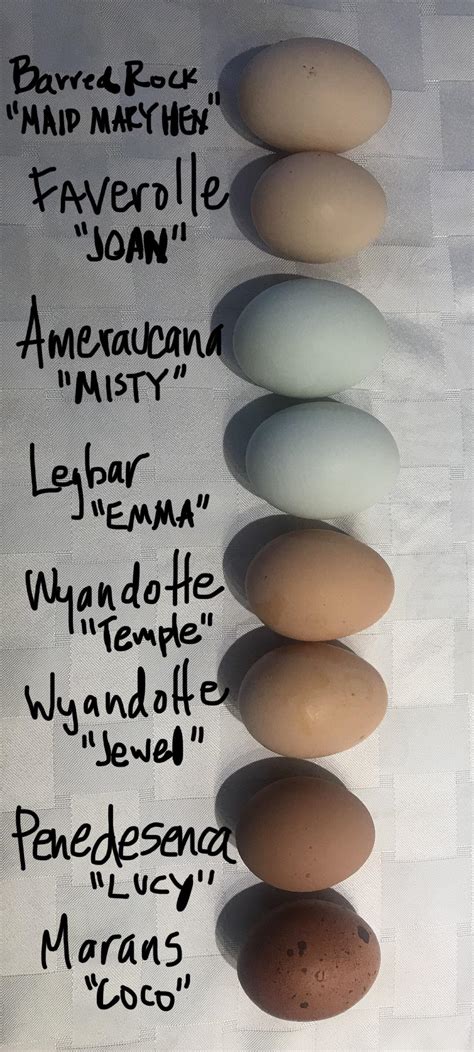 Barred Rock
"MAID MARY HEN"
FAVerolle
"JOAN"
Ameraucana
"MISTY"
Legbar
"EMMA"
Wyandotte
"Temple"
Wyandotte
"Jewel"
Penedesenca
"LUCY"
Marans
"COCO"